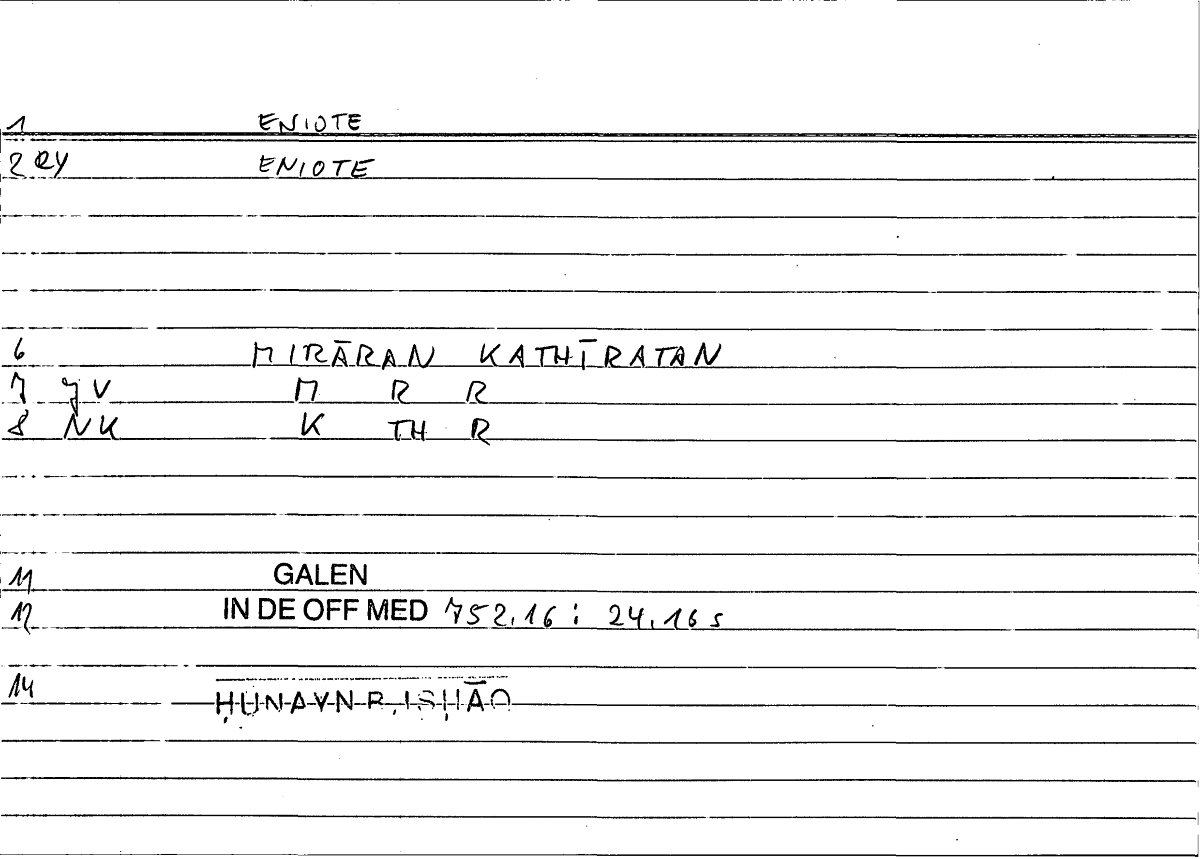 1 ENIOTE
2 QY ENIOTE
6 MIRĀRAN KATHĪRATAN
7 JV M R R
8 NK K TH R
11 GALEN
12 IN DE OFF MED 752.16 : 24.16 s
14 ḤUNAYN B. ISḤĀQ